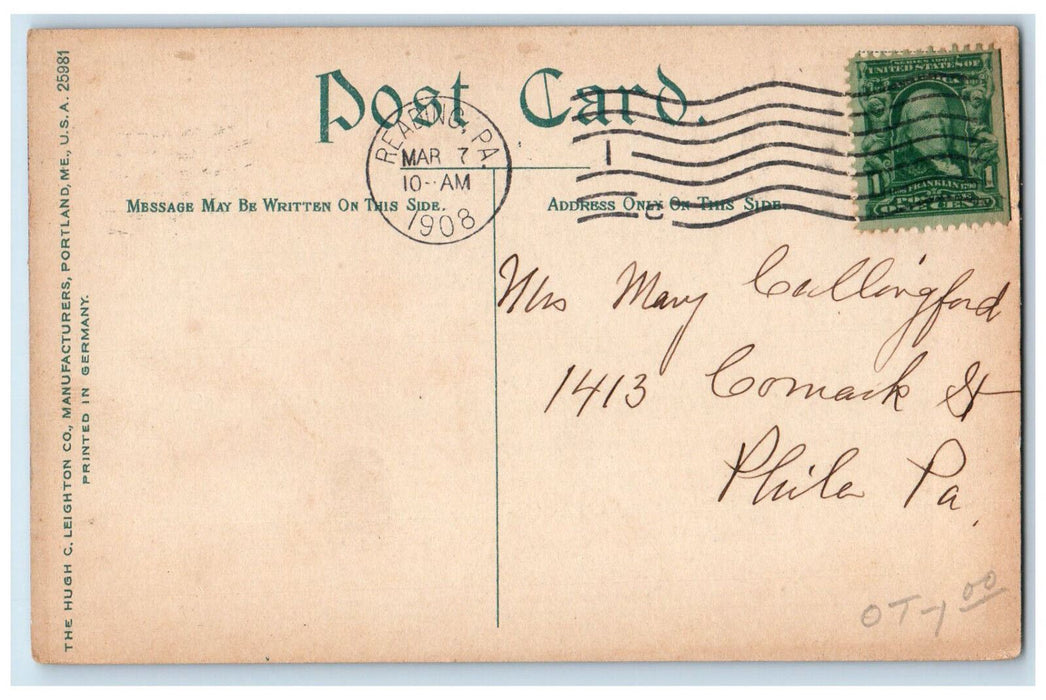 Post Card.
READING, PA.
MAR 7
10-AM
1908
1
C
SERIES 1902
UNITED STATES OF
AMERICA
FRANKLIN 1790
1 1
ONE CENT
MESSAGE MAY BE WRITTEN ON THIS SIDE.
ADDRESS ONLY ON THIS SIDE.
Mrs Mary Cullingford
1413 Comack St
Phila Pa.
OT-1 00
THE HUGH C. LEIGHTON CO., MANUFACTURERS, PORTLAND, ME., U.S.A. 25981
PRINTED IN GERMANY.